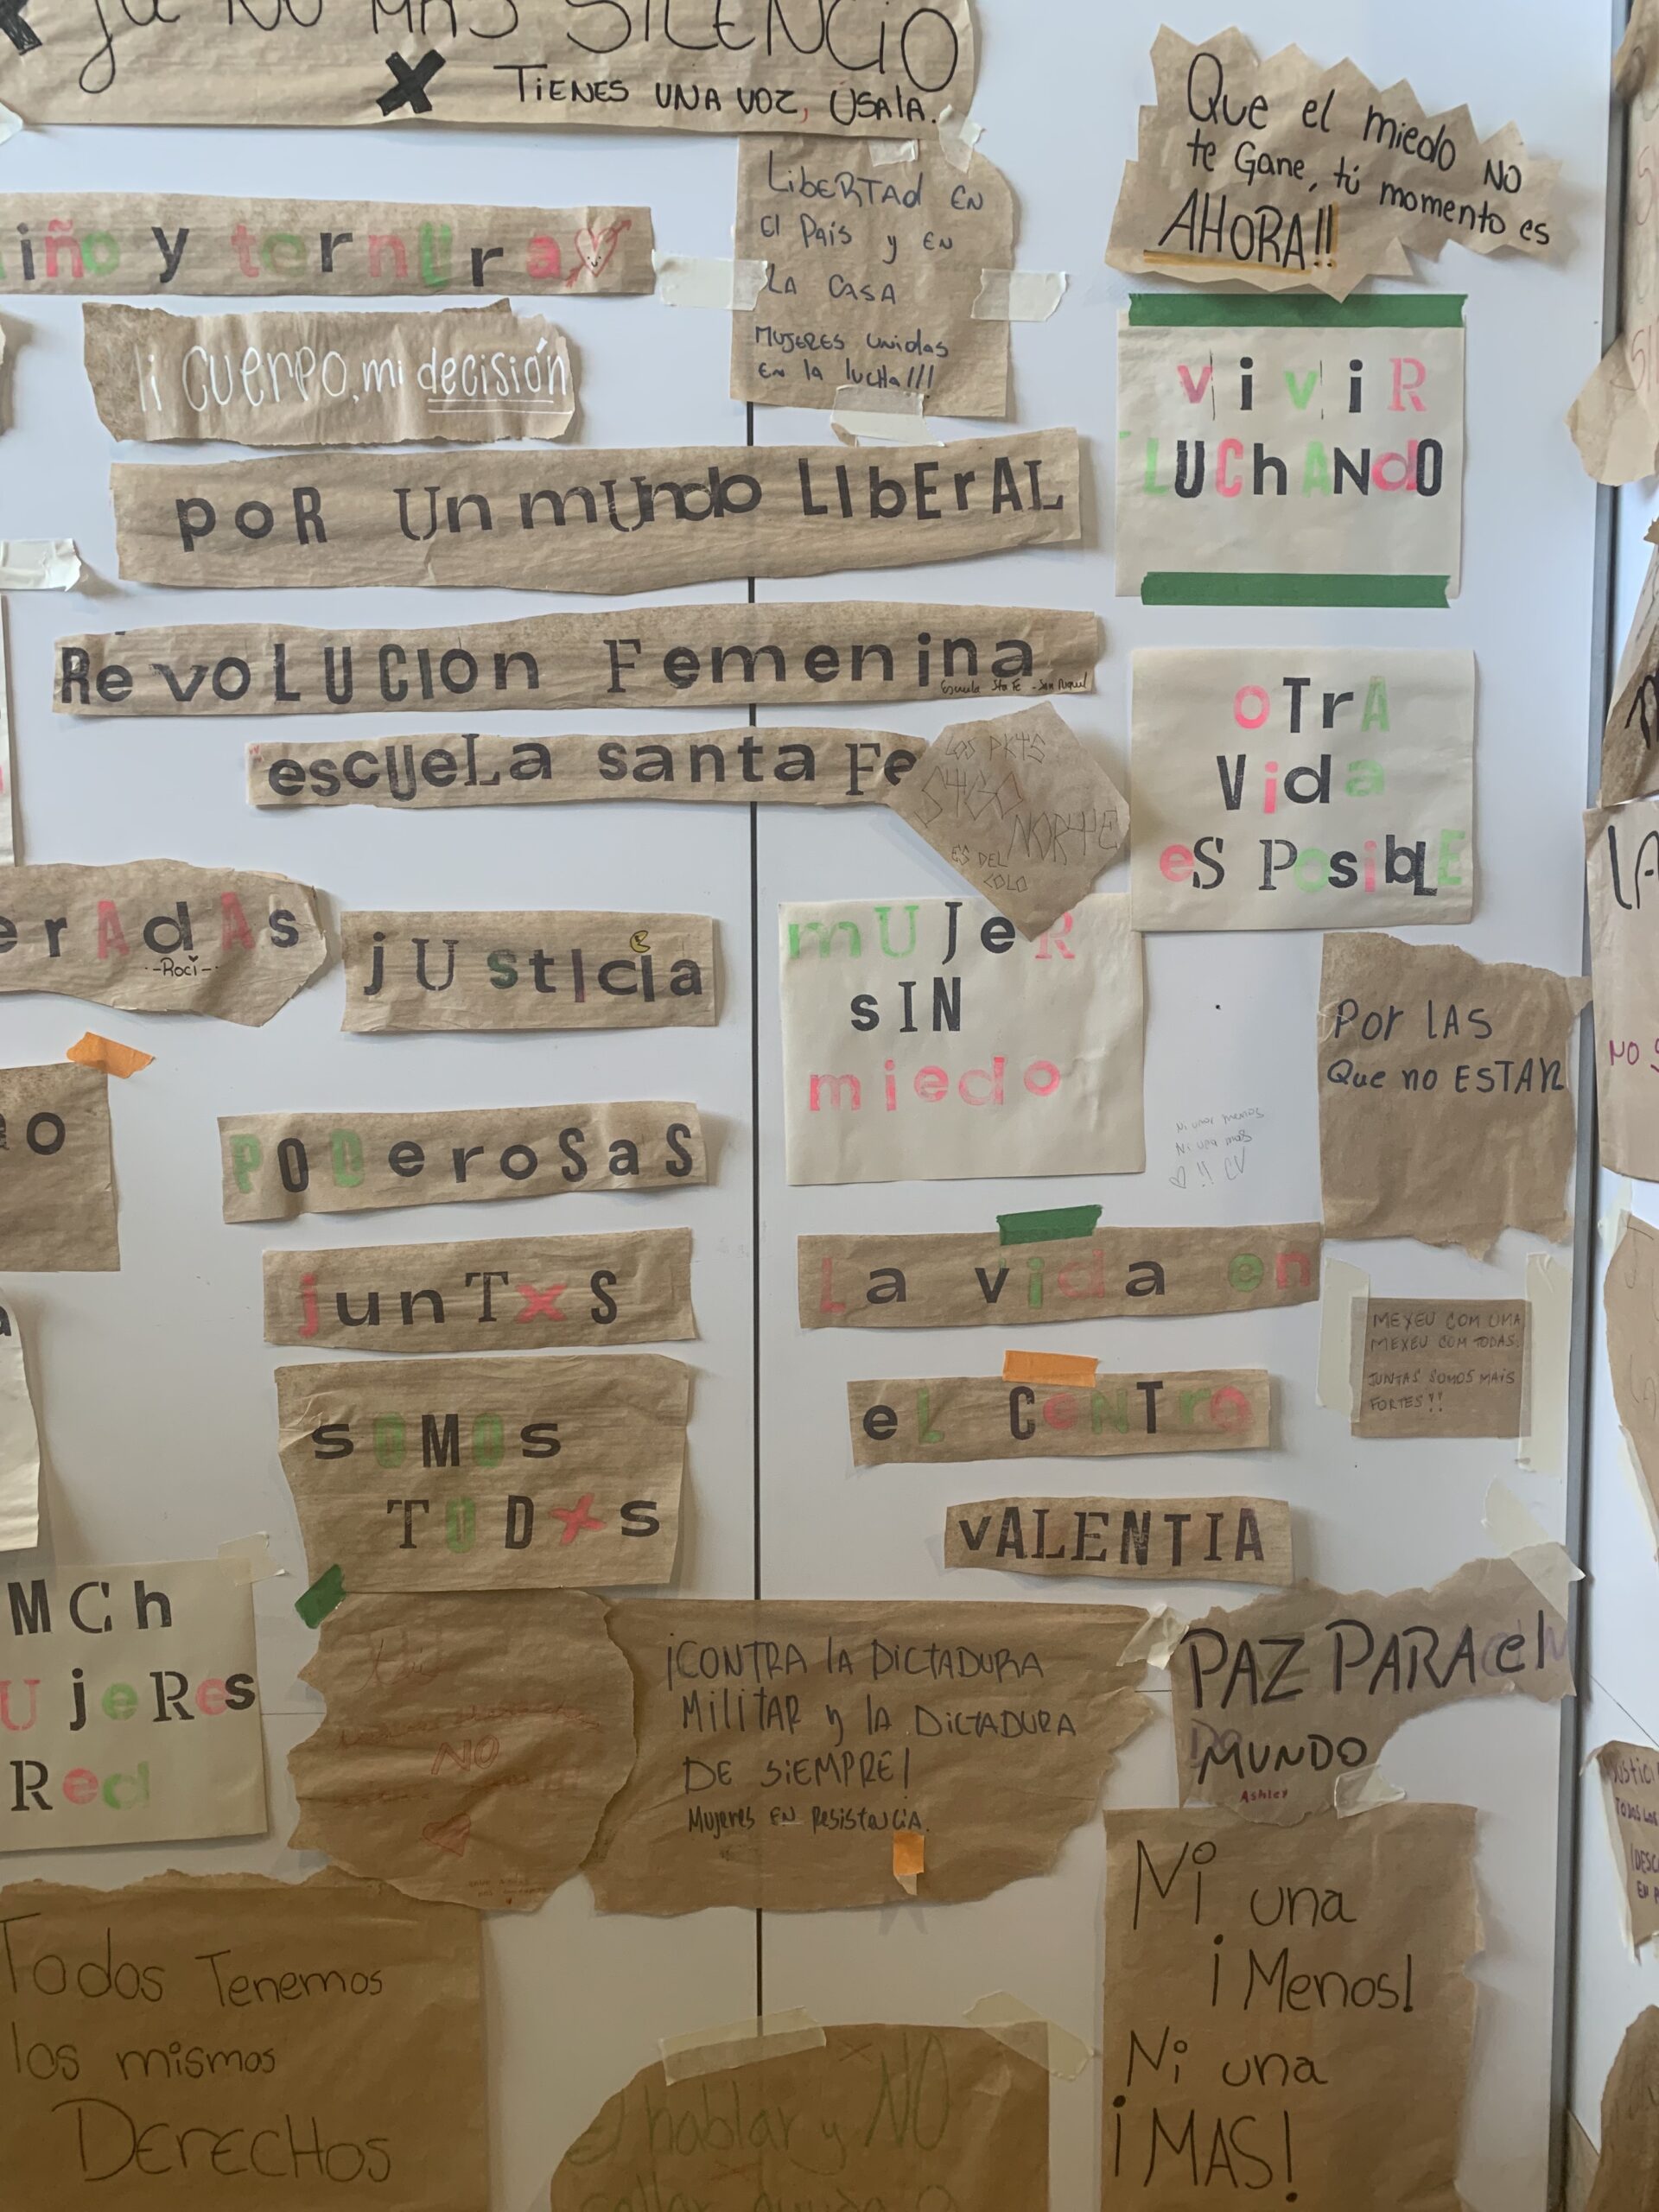 NO MAS SILENCIO
TIENES UNA VOZ, USALA.
Que el miedo NO
te Gane, tú momento es
AHORA!!
iño y ternUra
LibERTAd EN
El País y EN
LA CASA
MUJERES UNidas
EN la lucha!!!
i CUERPO, mi decisión
viviR
LUChANdO
poR Un mUndo LIbErAL
RevoLUCIon Femenina
Escuela Sta Fe - San Miguel
escUeLa santa Fe
LOS PKTS
STGO
NORTE
ES DEL
COLO
oTrA
Vida
eS PosibLE
erAdAs
-Roci-
jUstIcIa
mUJeR
sIN
miedo
Por LAS
Que no ESTAN
o
PODeroSaS
Ni una menos
Ni una mas
♡ !! CV
junTxS
La vida en
MEXEU COM UMA
MEXEU COM TODAS.
JUNTAS SOMOS MAIS
FORTES!!
eL CeNTro
sOMOs
TUDxs
vALENTIA
MCh
UjeRes
Red
NO
¡CONTRA lA DICTADURA
MilitAR y lA DICTADURA
DE SiEMPRE!
Mujeres EN Resistencia.
PAZ PARA el
MUNDO
Ashley
Todos Tenemos
los mismos
DErECHos
hablar y NO
Ni una
¡Menos!
Ni una
¡MAS!